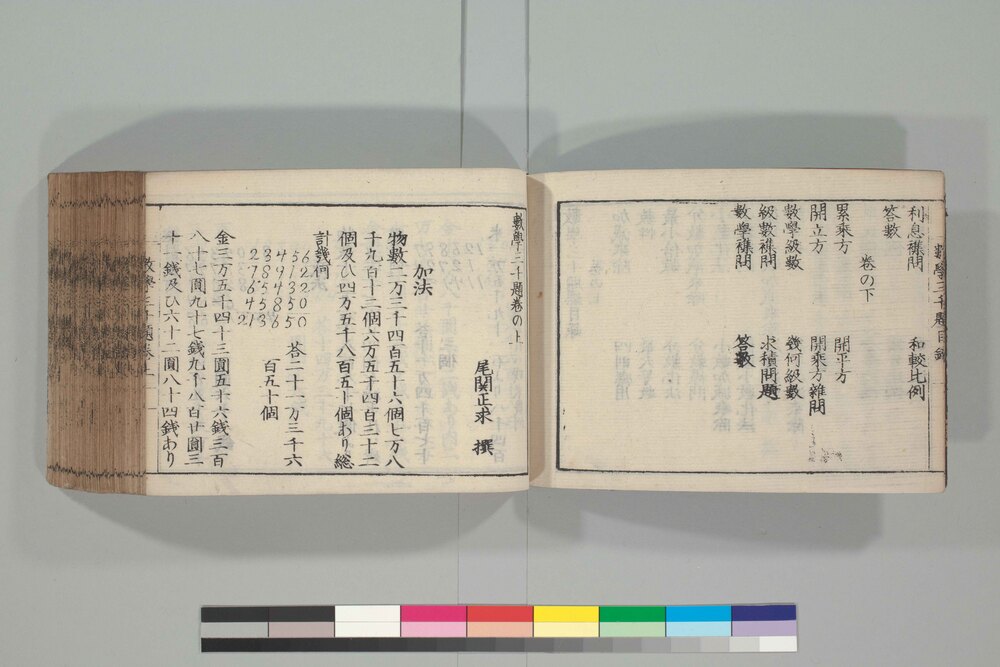 數學三千題目録
利息襍問 和較比例
答數
卷の下
累乘方 開平方
開立方 開乘方雜問
數學級數 幾何級數
級數襍問 求積問題
數學襍問 答數
數學三千題卷の上
尾関正求 撰
加法
物數二万三千四百五十六個七万八
千九百十二個六万五千四百三十二
個及ひ四万五千八百五十個あり総
計幾何
23456
78912
65432
45850
213650
答二十一万三千六
百五十個
金三万五千四十三圓五十六銭三百
八十七圓九十七銭九千八百廿圓三
十一銭及ひ六十二圓八十四銭あり
數學三千題卷上